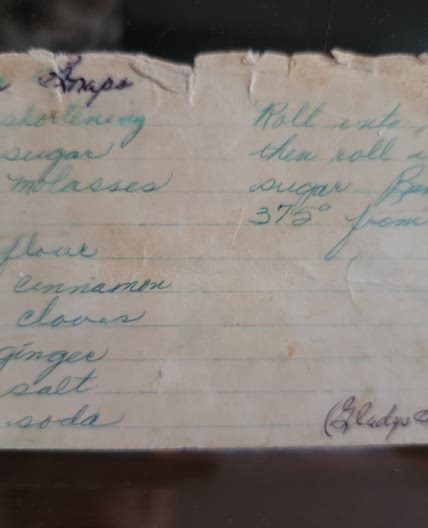 Snaps
shortening
sugar
molasses
flour
cinnamon
cloves
ginger
salt
soda
Roll into
then roll
sugar.
375° from
(Gladys